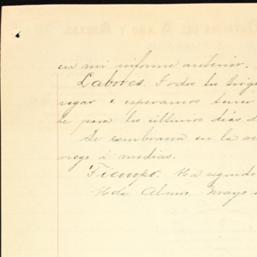 en mi informe anterior.
Labores. Todos los trigos
regar é esperamos tener
se para los últimos dias d
Se sembraron en la se
riego á medias.
Tiempo. Ha seguido
Hda. Alamo, Mayo